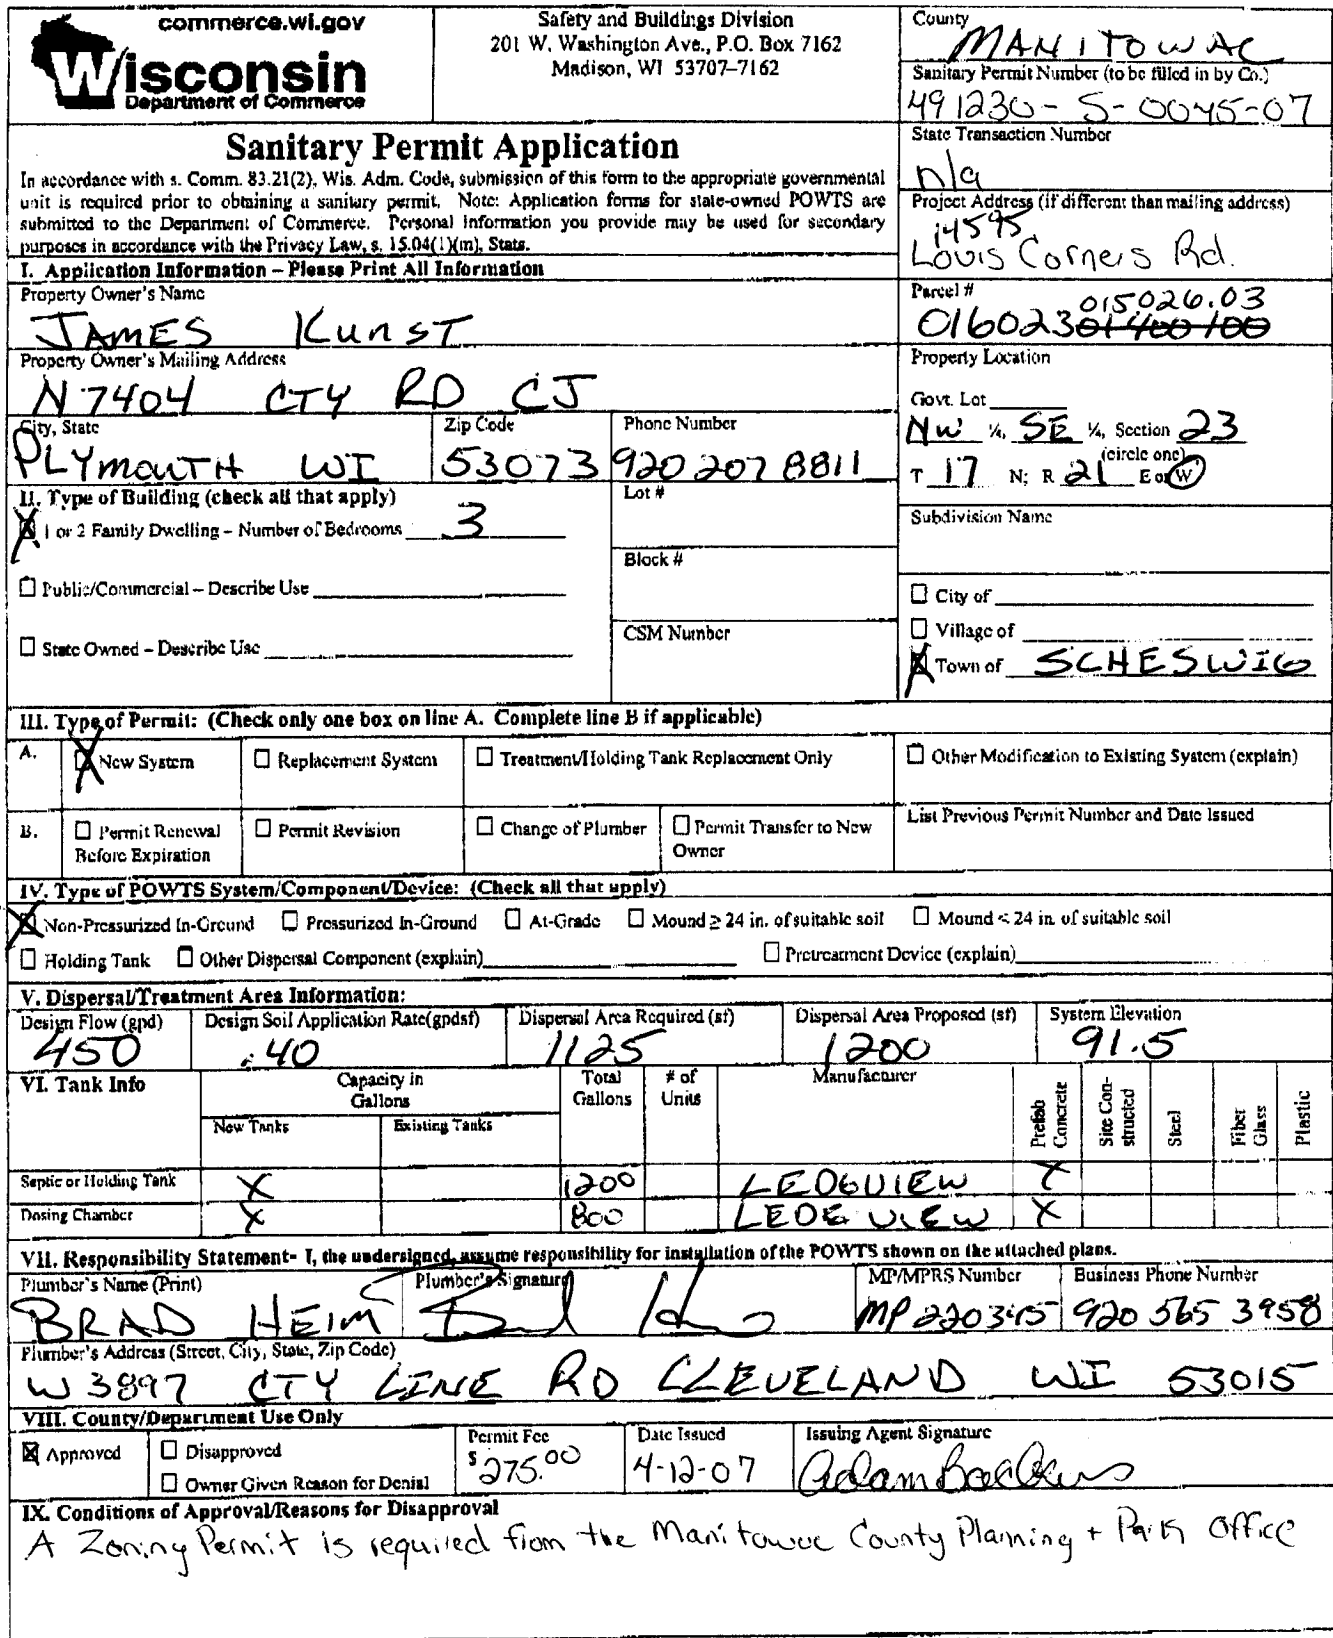 commerce.wi.gov
Wisconsin
Department of Commerce
Safety and Buildings Division
201 W. Washington Ave., P.O. Box 7162
Madison, WI 53707-7162
County
MANITOWAC
Sanitary Permit Number (to be filled in by Co.)
491230-S-0045-07
Sanitary Permit Application
In accordance with s. Comm. 83.21(2), Wis. Adm. Code, submission of this form to the appropriate governmental
unit is required prior to obtaining a sanitary permit. Note: Application forms for state-owned POWTS are
submitted to the Department of Commerce. Personal information you provide may be used for secondary
purposes in accordance with the Privacy Law, s. 15.04(1)(m), Stats.
State Transaction Number
n/a
Project Address (if different than mailing address)
14595
Louis Corners Rd.
I. Application Information – Please Print All Information
Property Owner's Name
JAMES KUNST
Parcel #
015026.03
016023 01400100
Property Owner's Mailing Address
N7404 CTY RD CJ
Property Location
Govt. Lot
NW ¼, SE ¼, Section 23
(circle one)
T 17 N; R 21 E or W
City, State
PLYMOUTH WI
Zip Code
53073
Phone Number
920 207 8811
II. Type of Building (check all that apply)
1 or 2 Family Dwelling – Number of Bedrooms 3
Public/Commercial – Describe Use
State Owned – Describe Use
Lot #
Block #
CSM Number
Subdivision Name
City of
Village of
Town of SCHESWIG
III. Type of Permit: (Check only one box on line A. Complete line B if applicable)
A. New System Replacement System Treatment/Holding Tank Replacement Only Other Modification to Existing System (explain)
B. Permit Renewal Before Expiration Permit Revision Change of Plumber Permit Transfer to New Owner List Previous Permit Number and Date Issued
IV. Type of POWTS System/Component/Device: (Check all that apply)
Non-Pressurized In-Ground Pressurized In-Ground At-Grade Mound ≥ 24 in. of suitable soil Mound < 24 in. of suitable soil
Holding Tank Other Dispersal Component (explain) Pretreatment Device (explain)
V. Dispersal/Treatment Area Information:
Design Flow (gpd) Design Soil Application Rate(gpdsf) Dispersal Area Required (sf) Dispersal Area Proposed (sf) System Elevation
450 .40 1125 1200 91.5
VI. Tank Info
Capacity in Gallons
New Tanks Existing Tanks
Total Gallons
# of Units
Manufacturer
Prefab Concrete
Site Constructed
Steel
Fiber Glass
Plastic
Septic or Holding Tank X 1200 LEDGVIEW X
Dosing Chamber X 800 LEDGVIEW X
VII. Responsibility Statement- I, the undersigned, assume responsibility for installation of the POWTS shown on the attached plans.
Plumber's Name (Print) Plumber's Signature MP/MPRS Number Business Phone Number
BRAD HEIM MP 220345 920 565 3958
Plumber's Address (Street, City, State, Zip Code)
W3897 CTY LINE RD CLEVELAND WI 53015
VIII. County/Department Use Only
Approved
Disapproved
Owner Given Reason for Denial
Permit Fee
$275.00
Date Issued
4-12-07
Issuing Agent Signature
Adam Backus
IX. Conditions of Approval/Reasons for Disapproval
A Zoning Permit is required from the Manitowoc County Planning + Park Office